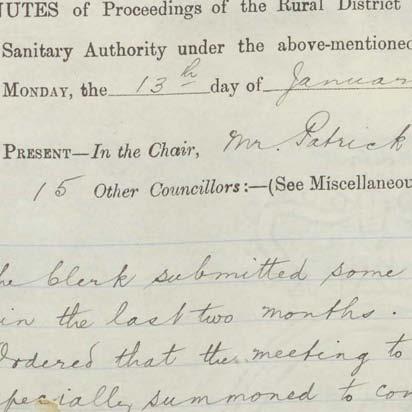 NUTES of Proceedings of the Rural District
Sanitary Authority under the above-mentioned
MONDAY, the 13th day of Januar
PRESENT—In the Chair, Mr. Patrick
15 Other Councillors:—(See Miscellaneou
he Clerk submitted some
in the last two months.
Ordered that the meeting to
pecially summoned to con